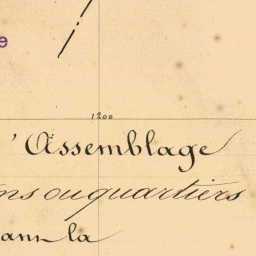 e
1200
'Assemblage
ns ou quartiers
ans la